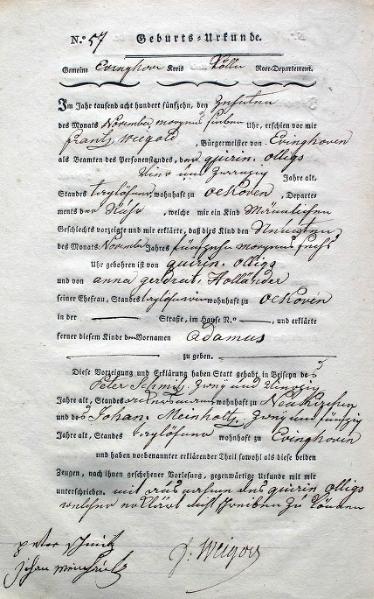 N.º 57 Geburts-Urkunde.
Gemeim Evinghoven Kreis Kölln Roer-Departement.
Im Jahr tausend acht hundert fünfzehn, den
des Monats November morgens sieben Uhr, erschien vor mir
frantz Weigold, Bürgermeister von Evinghoven
als Beamten des Personenstandes, der quirin olligs
Jahre alt,
Standes taglöhner wohnhaft zu oekoven, Departe-
ments der Ruhr, welche mir ein Kind Mänlichen
Geschlechts vorzeigte und mir erklärte, daß dies Kind den
des Monats November Jahres fünfzehn morgens sechs
Uhr gebohren ist von quirin olligs
und von anna gerdrut Holländer
seiner Ehefrau, Standes wohnhaft zu oekovin
in der Straße, im Hause N.º und erklärte
ferner diesem Kinde Vornamen adamus
zu geben.
Diese Vorzeigung und Erklärung haben Statt gehabt in Beiseyn des
Peter Schmitz zwey und
Jahre alt, Standes wohnhaft zu Neukirchen
und des Johan Meinholtz, zwey und fünfzig
Jahre alt, Standes taglöhner wohnhaft zu Evinghovin
und haben vorbenannter erklärender Theil sowohl als diese beiden
Zeugen, nach ihnen geschehener Vorlesung, gegenwärtige Urkunde mit mir
unterschrieben. mit ausnahme des quirin olligs
welcher erklärt nicht schreiben zu können
peter schmitz
johan
f: Weigold